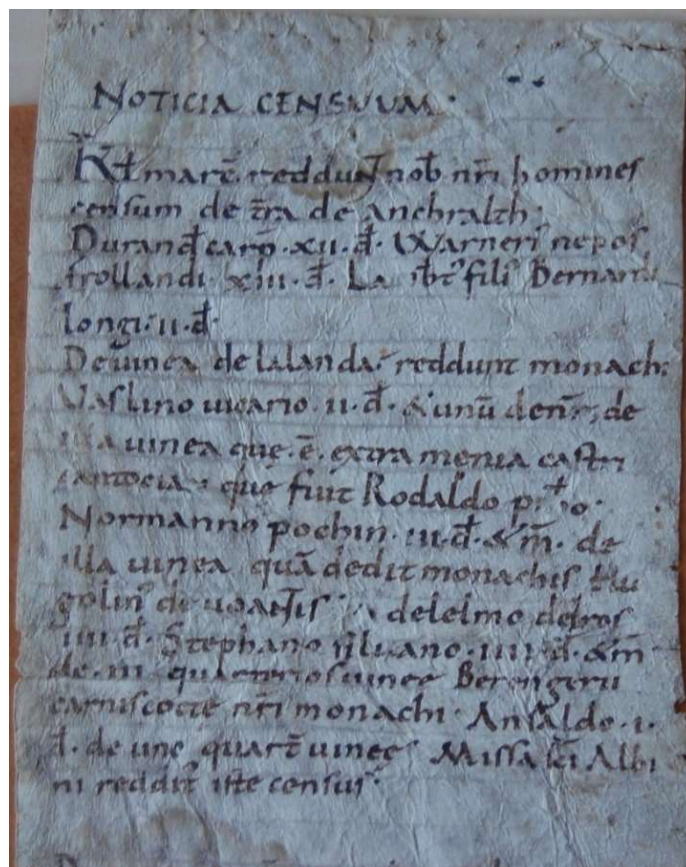 NOTICIA CENSUUM.
Kł marc̄. reddunt nob̄ nr̄i homines
censum de t̄ra de anebralth.
Durand̄ carp̄ .xii. d̄. Warneri᾽ nepos
frollandi .xiii. d̄. La b̄t᾽ fili᾽ Bernardi
longi. ii. d̄.
De uinea de lalanda. reddunt monachi
Vaslino uicario .ii. d̄. & unū denr̄; de
illa uinea quę. ē. extra menia castri
quę fuit Rodaldo
Normanno pochin. iii. d̄. & m̄. de
illa uinea quā dedit monachis Hu
golin᾽ de delelmo
iiii. d̄. Stephano siluano. iiii. d̄. & m̄
de. iii. quarterios uineę Berengerii
carnis coctę nr̄i monachi. Ansaldo .i.
d̄. de uno quart̄ uineę. Missa sc̄i Albi
ni reddit᾽ iste census.